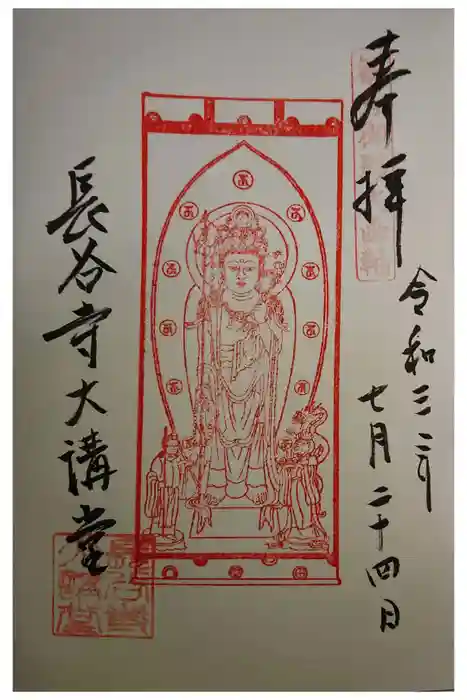 奉拝
令和三年
七月二十四日
長谷寺大講堂